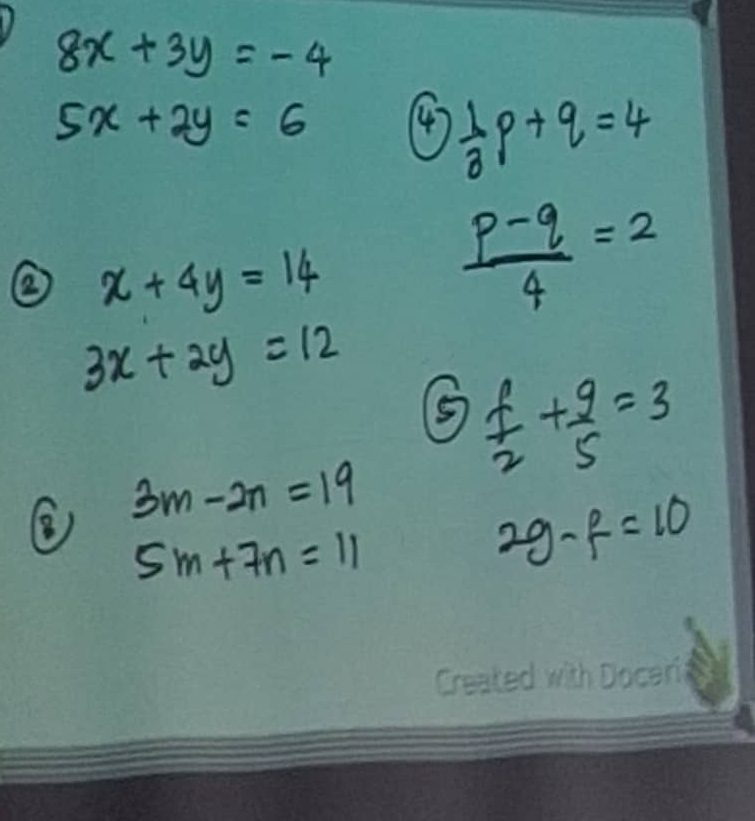 ① 8x + 3y = -4
5x + 2y = 6
② x + 4y = 14
3x + 2y = 12
③ 3m - 2n = 19
5m + 7n = 11
④ 1/3 p + q = 4
p - q / 4 = 2
⑤ f/2 + g/5 = 3
2g - f = 10
Created with Doceri